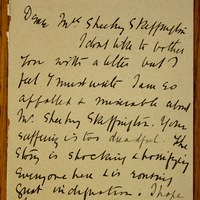 Dear Mrs Sheehy Skeffington
I don't like to bother
you with a letter but I
feel I must write I am so
appalled & miserable about
Mr. Sheehy Skeffington. Your
suffering is too dreadful. The
story is shocking & horrifying
Everyone here is
great indignation. I hope